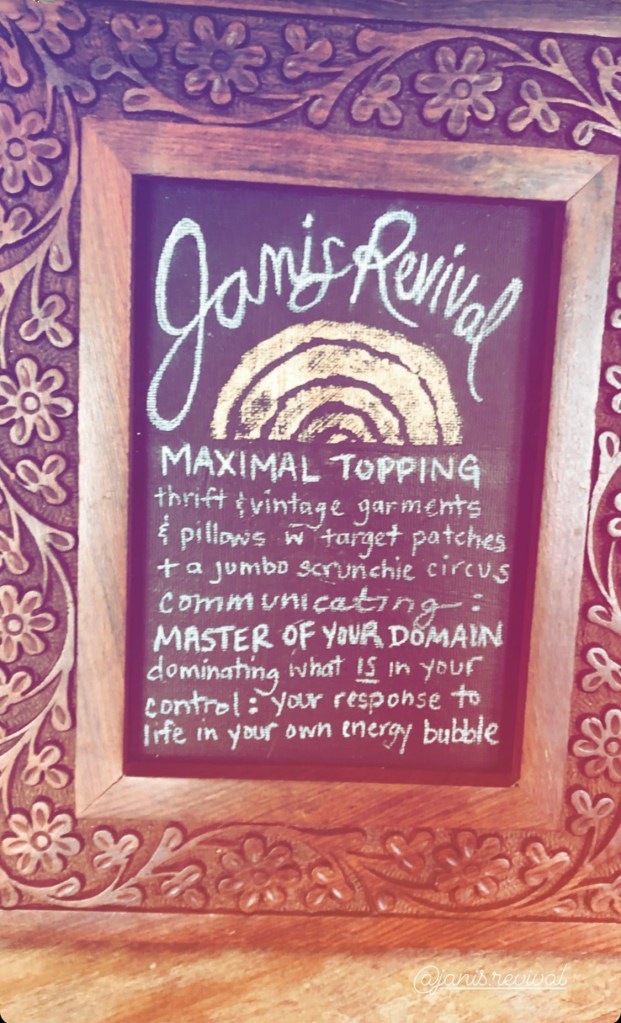 Janis Revival
MAXIMAL TOPPING
thrift & vintage garments
& pillows w target patches
+ a jumbo scrunchie circus
communicating:
MASTER OF YOUR DOMAIN
dominating what IS in your
control: your response to
life in your own energy bubble
@janis.revival